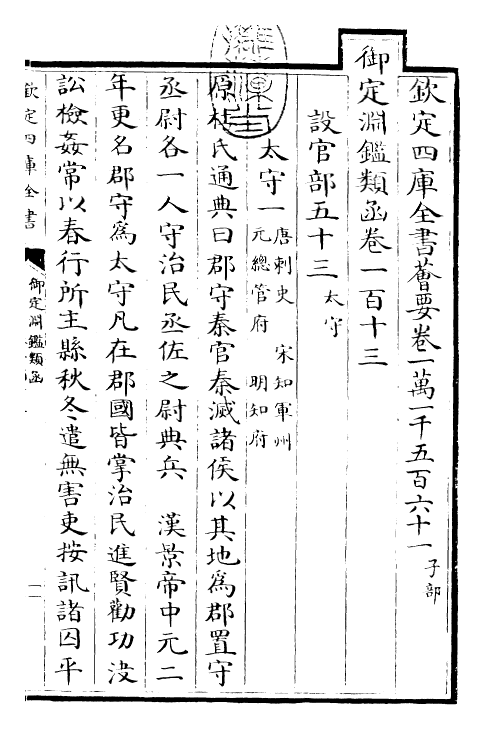 欽定四庫全書薈要卷一萬一千五百六十一 子部
御定淵鑑類函卷一百十三
設官部五十三 太守
太守一 唐刺史 宋知軍州
元總管府 明知府
原杜氏通典曰郡守秦官秦滅諸侯以其地爲郡置守
丞尉各一人守治民丞佐之尉典兵 漢景帝中元二
年更名郡守爲太守凡在郡國皆掌治民進賢勸功決
訟檢姦常以春行所主縣秋冬遣無害吏按訊諸囚平
欽定四庫全書
御定淵鑑類函
一